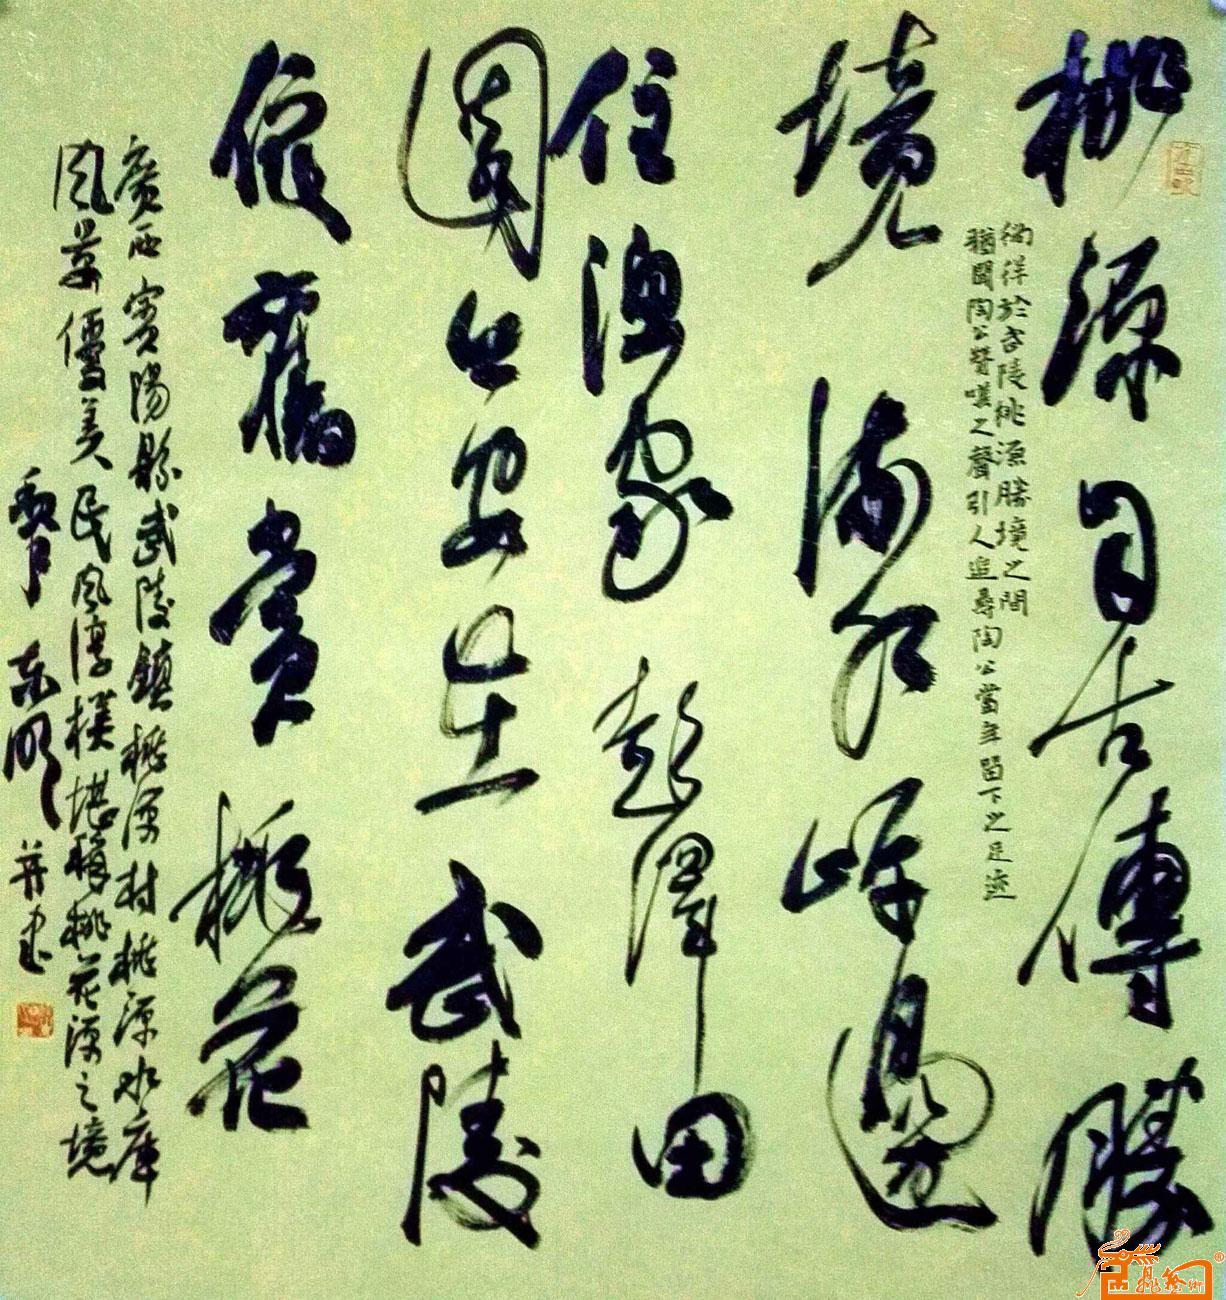 桃源自古傳勝
徜徉於陵桃源勝境之間
猶聞陶公贊嘆之聲引人追尋陶公當年留下之足迹
境水邊
住漁家彭澤田
園今安在武陵
依舊賞桃花
廣西賓陽縣武陵鎮桃源村桃源水庫
風景優美民風淳樸堪稱桃花源之境
東明並書